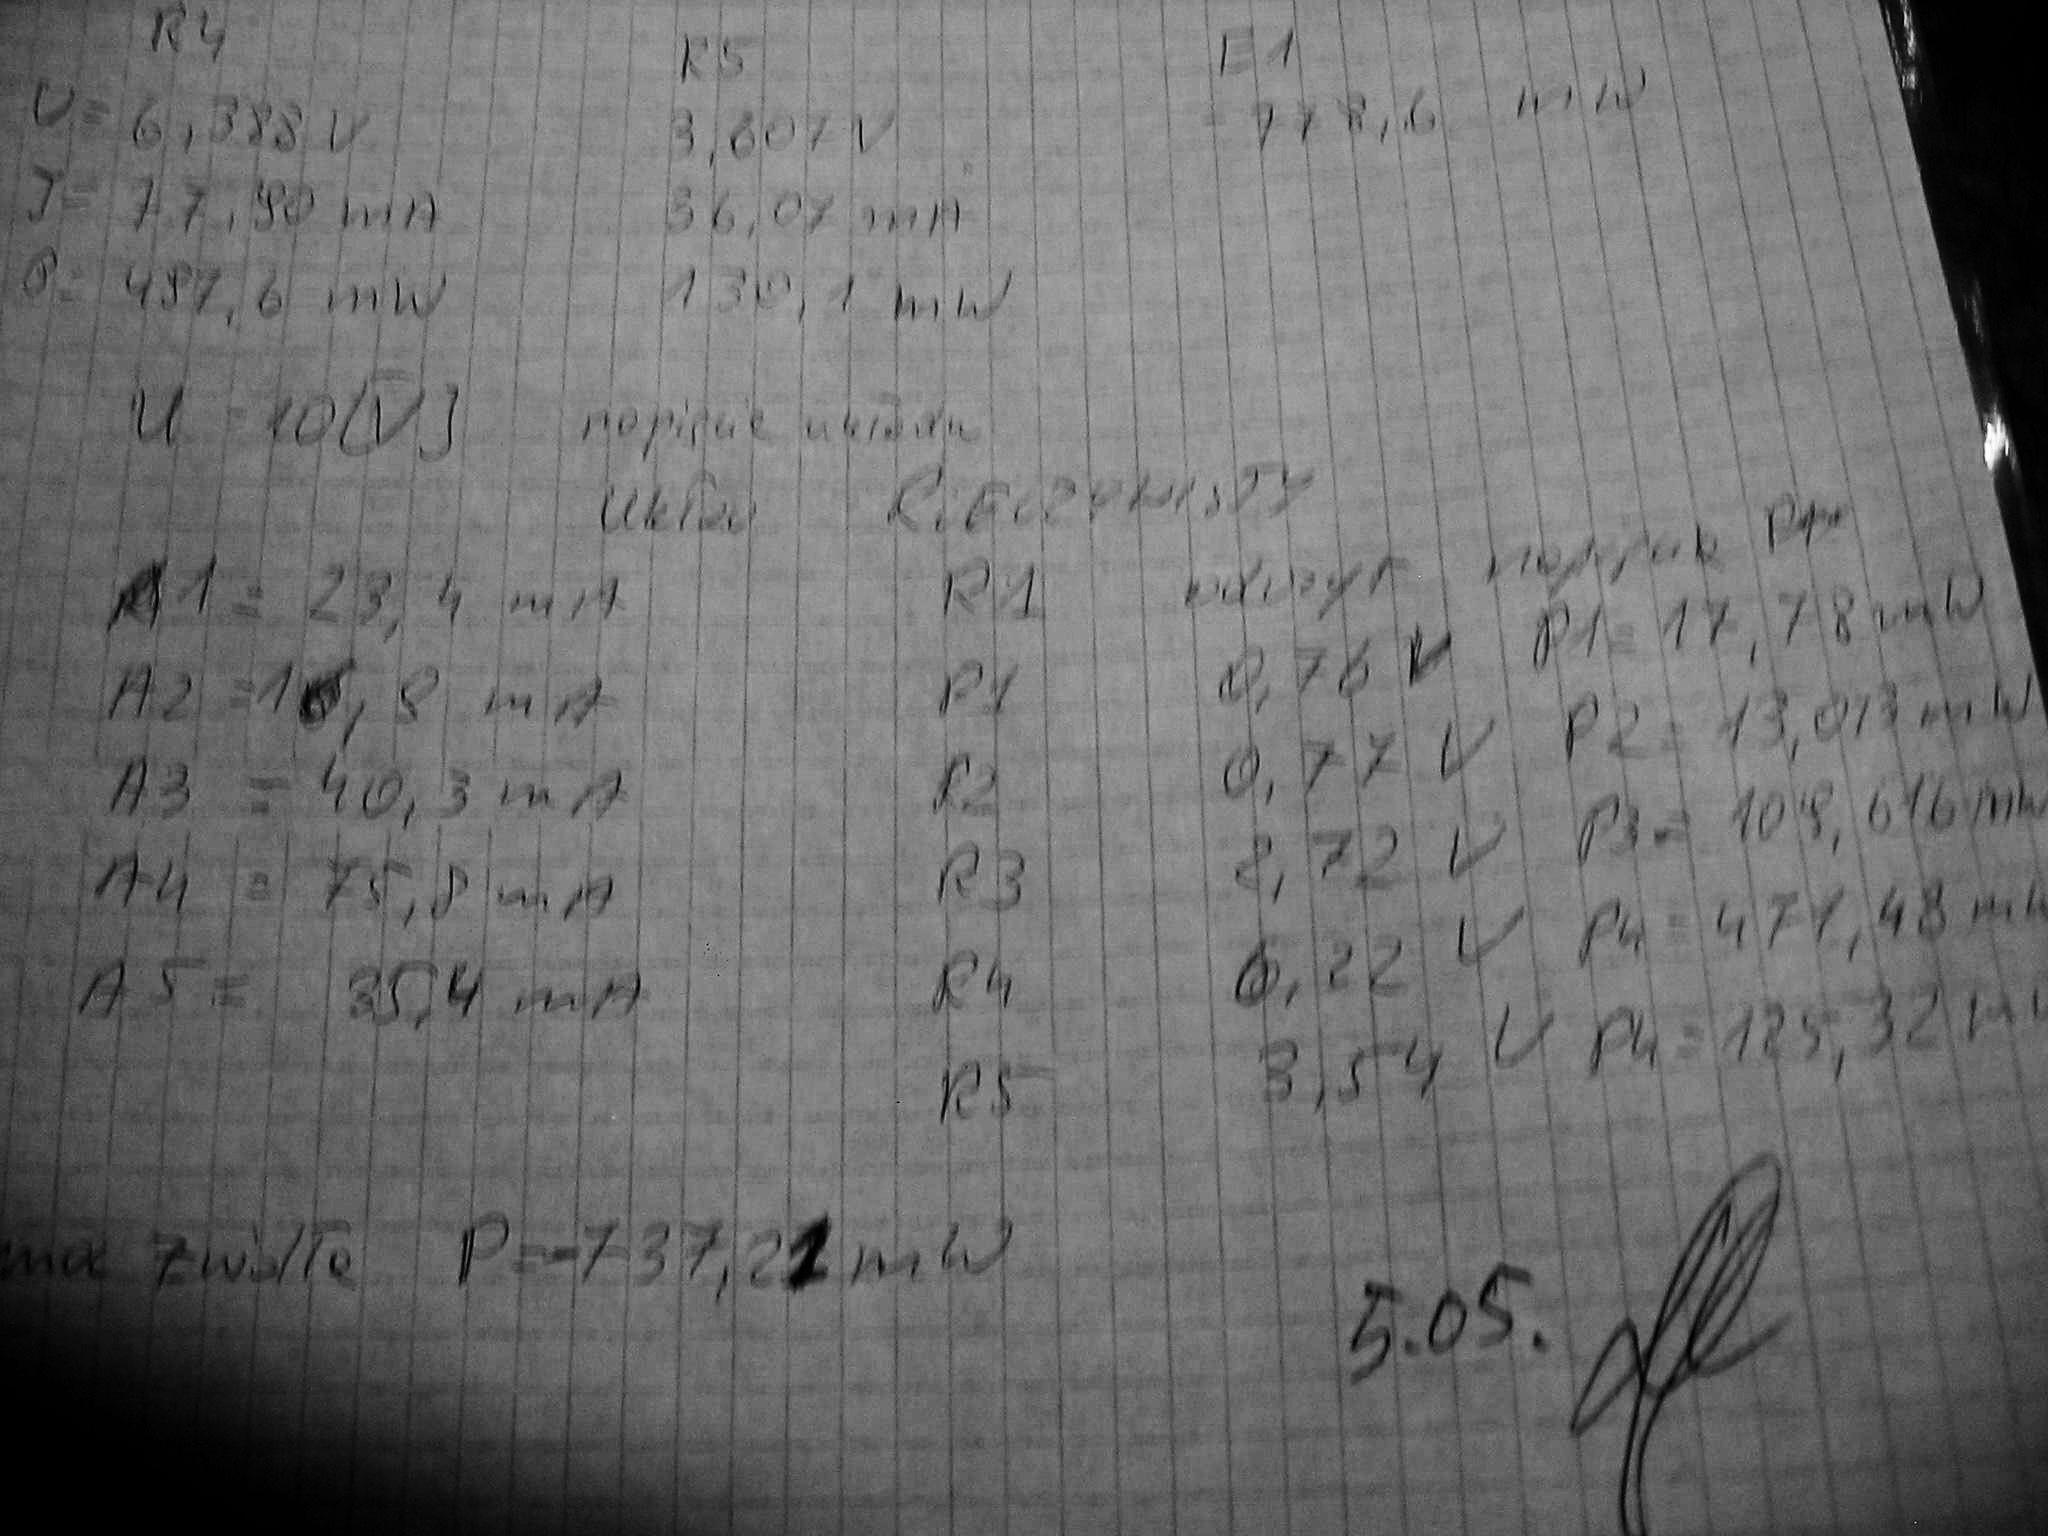 R4 R5 E1
U= 6,388 V 3,607 V -778,6 mW
I= 77,90 mA 36,07 mA
P= 497,6 mW 130,1 mW
U = 10[V] napięcie układu
Układ Rzeczywisty
A1 = 23,4 mA R1 odczyt napięcie
A2 = 16,9 mA R1 0,76 V P1= 17,78 mW
A3 = 40,3 mA R2 0,77 V P2= 13,013 mW
A4 = 75,8 mA R3 2,72 V P3= 109,616 mW
A5 = 35,4 mA R4 6,22 V P4= 471,48 mW
R5 3,54 V P4= 125,32 mW
źródła P=-737,21 mW
5.05.